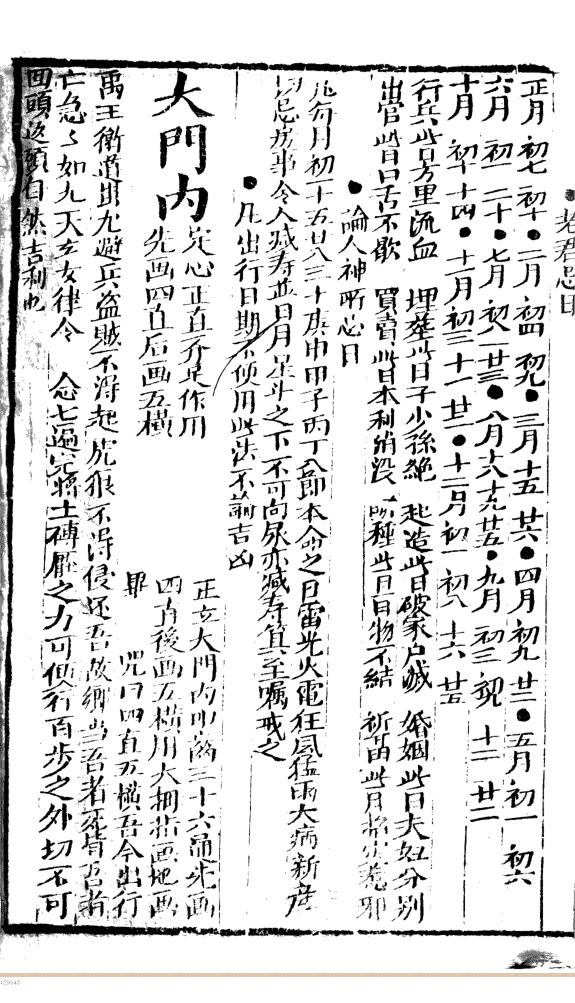 ●老君忌日
正月 初七 初十●二月 初四 初九●三月十五 廿六●四月 初九 廿二●五月 初一 初六
六月 初一 二十●七月 初八 廿三●八月十六十九廿五●九月 初三 十二 廿二
十月 初一十四●十一月初三十一廿一●十二月初一 初八 十六 廿五
行兵此日万里流血 埋葬此日子少孫絕 起造此日破家戶滅 婚姻此日夫妇分别
出官此日口舌不歇 買賣此日本利消没 種此日百物不結 此日 邪
●論人神所忌日
凡每月初一十五廿八三十庚申甲子丙丁及即本命之日雷光火電狂風猛雨大病新産
切忌房事令人减寿並日月星斗之下不可向尿亦减寿算至嘱戒之
●凡出行日期不便用此法不論吉凶
大門内
定心正直齐足作用
先画四直后画五横
正立大門内叩齒三十六通先画
四直後画五横用大拇指画地画
畢 咒曰四直五横吾今出行
禹王衛道 避兵盗賊不淂起虎狼不淂侵还吾故鄉当吾者死背吾者
亡急〻如九天玄女律令 念七遍 土磚壓之方可便行百步之外切不可
回頭返頭自然吉利也
129945